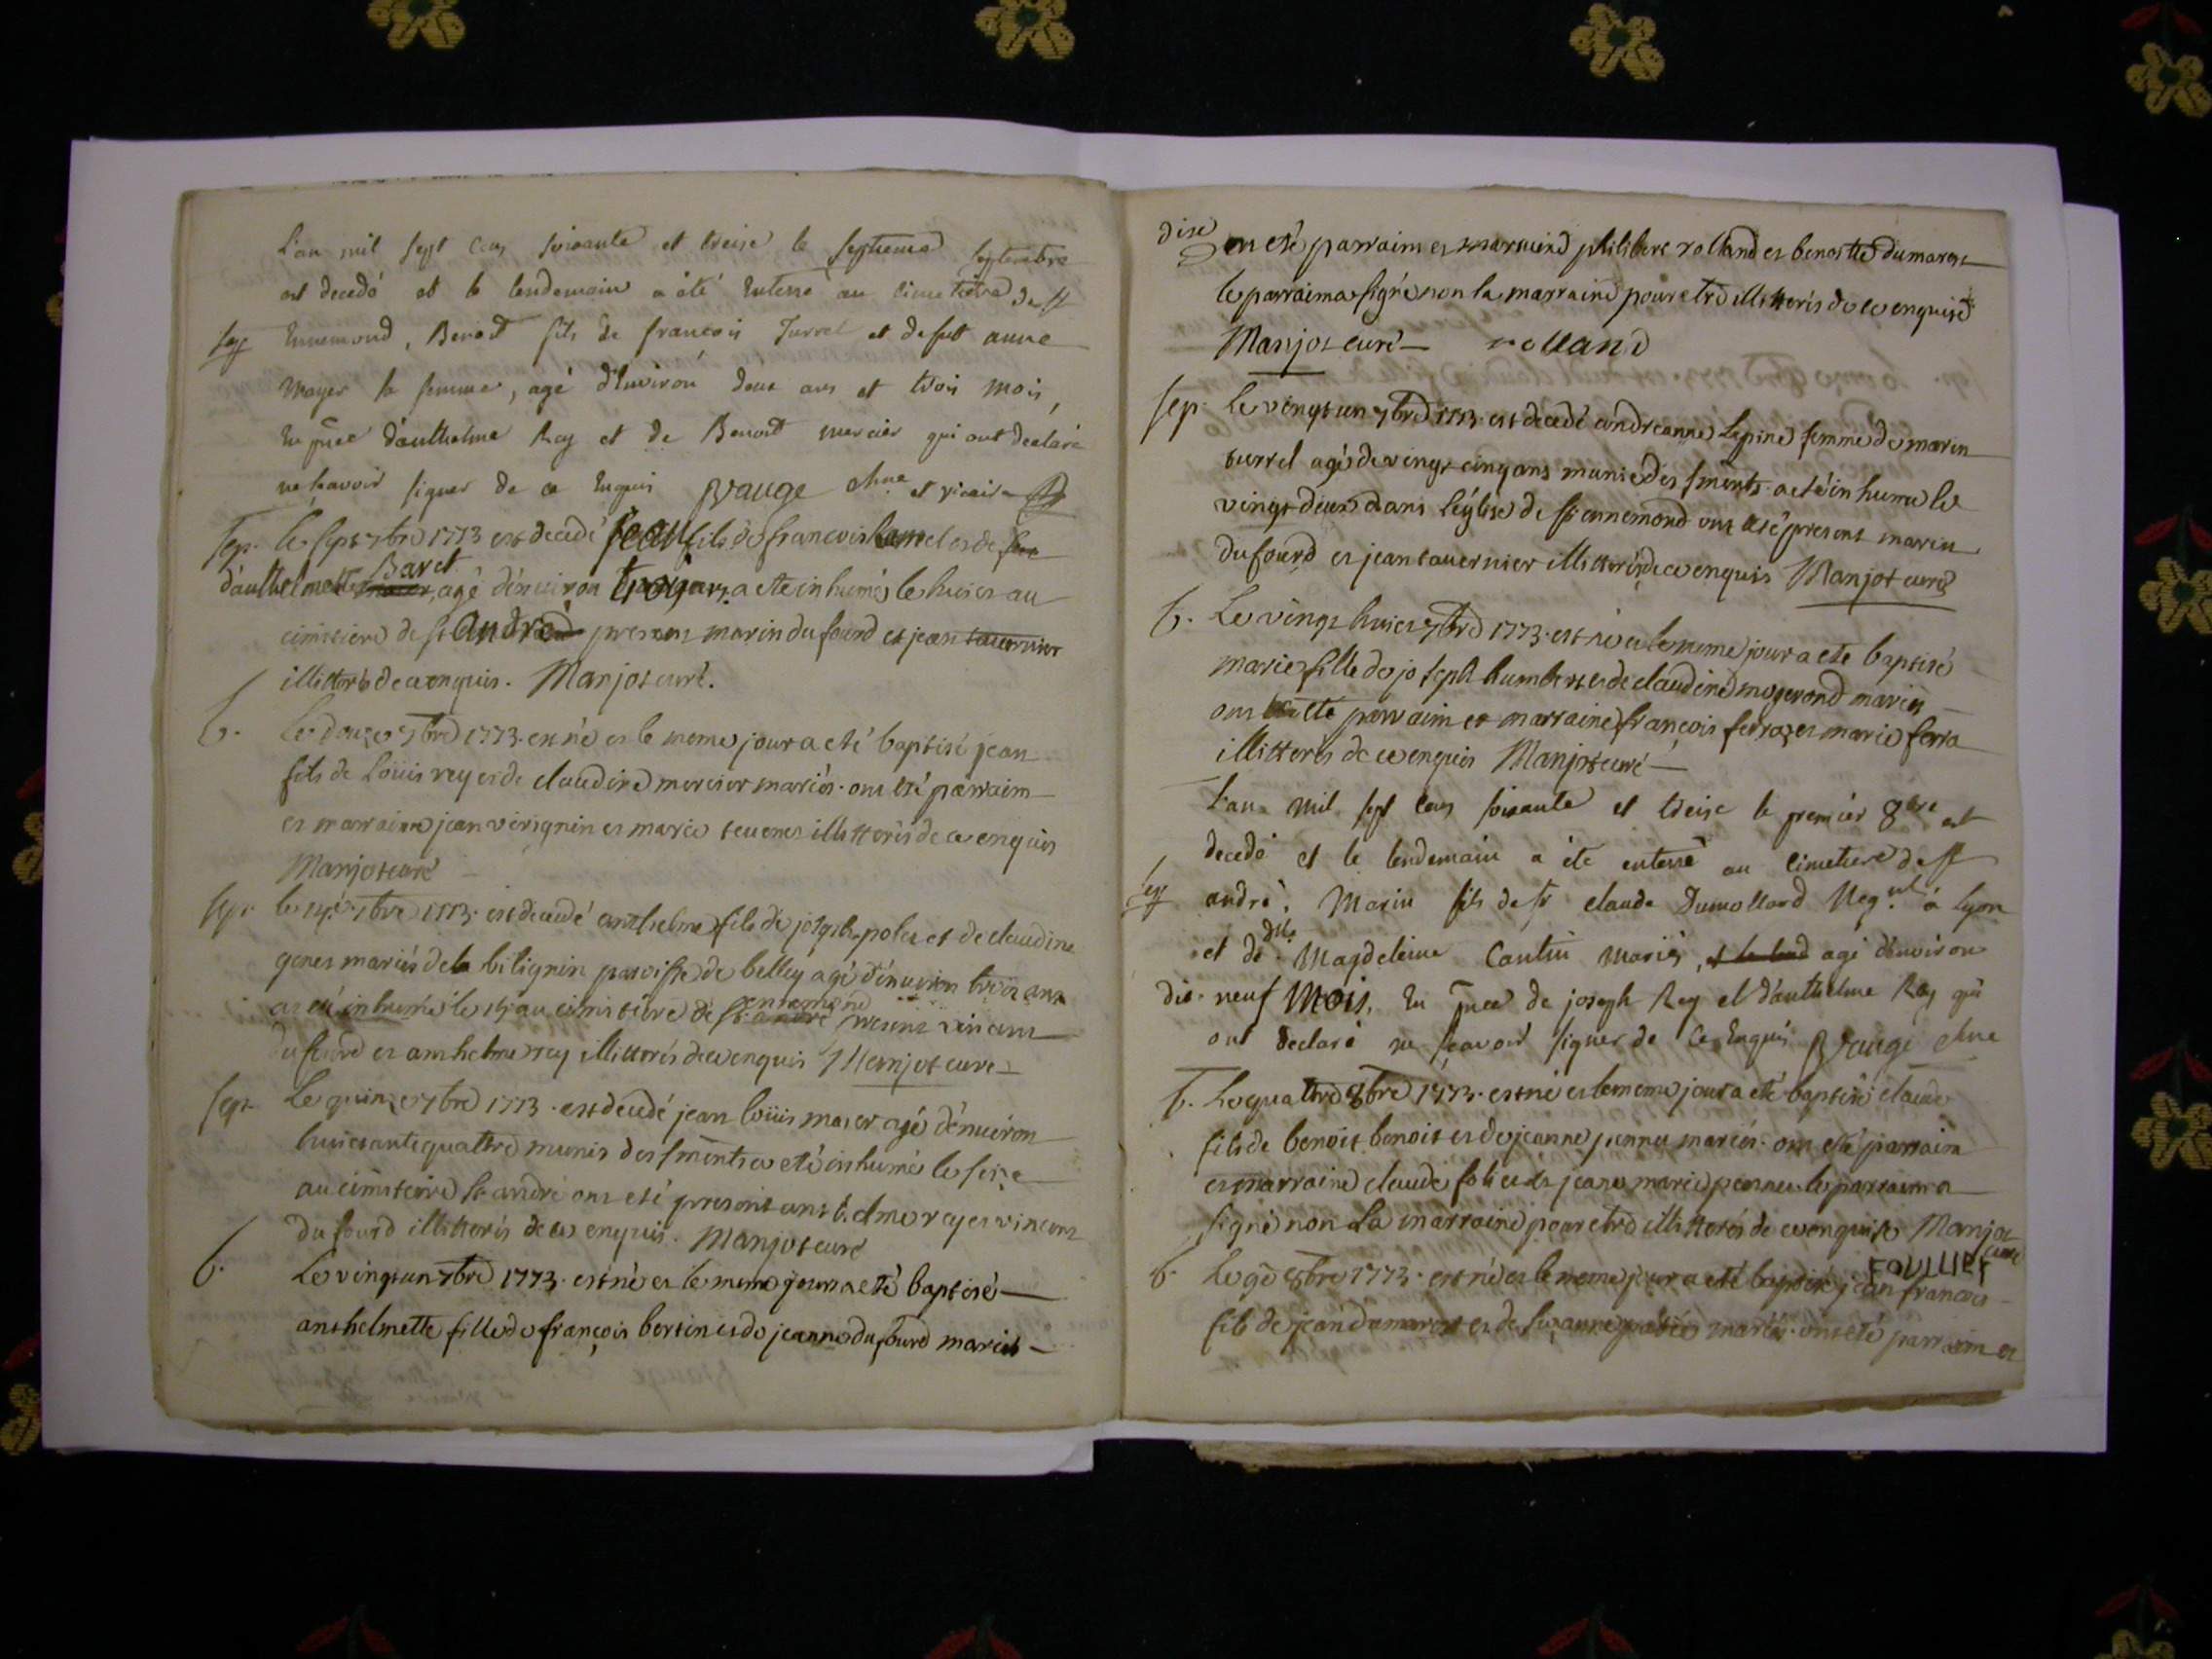 L'an mil sept cens soixante et treise le septieme septembre
est decedé et le lendemain a été enterré au cimetiere de st
sep Ennemond, Benoit fils de francois Turrel et defut anne
mager sa femme, agé d'environ deux ans et trois mois,
en pnce d'anthelme Rey et de Benoit mercier qui ont declaré
ne scavoir signer de ce enquis Vauge chne et vicaire
sep. le sept 7bre 1773 est decedé jean fils de francois et de
Baret
d'anthelmette agé d'environ trois ans. a ete inhumé le huict au
cimitiere de st andré presens marin dufourd et jean tavernier
illitteres de ce enquis. Manjot curé.
b. Le douze 7bre 1773. est né et le meme jour a eté baptisé jean
fils de Loüis rey et de claudine mercier mariés. ont eté parraim
et marraine jean virignin et marie tevenet illitteres de ce enquis
Manjot curé
sep. le 14e 7bre 1773. est decedé anthelme fils de joseph polet et de claudine
genet mariés de la bilignin paroisse de belley agé d'enuiron trois ans
a eté inhumé le 15 au cimitiere de st ennemond presens vincent
dufourd et anthelme rey illitterés de ce enquis Manjot cure
sep. Le quinze 7bre 1773. est decedé jean loüis macer agé d'enuiron
huictante quattre munis des sments a eté inhumé le seize
au cimiteire st andré ont eté presents anthelme rey et vincent
dufourd illitterés de ce enquis. Manjot curé
b. Le vingt un 7bre 1773. est né et le meme jour a eté baptisé
anthelmette fille de françois bertin et de jeanne dufourd mariés
dise
ont eté parraim et marraine philibert rolland et benoitte dumarest
le parraim a signé non la marraine pour etre illitteris de ce enquise
Manjot curé rolland
sep. Le vingt un 7bre 1773. est decedé andreanne Lepine femme de marin
turrel agé de vingt cinq ans munie des sments. a eté inhumé le
vingt deux dans l'église de st ennemond ont eté present marin
dufourd et jean tavernier illitterés de ce enquis Manjot curé
b. Le vingt huict 7bre 1773. est né et le meme jour a ete baptisé
marie fille de joseph humbert et de claudine mogerond mariés
ont eté parraim et marraine françois ferra et marie ferra
illitterés de ce enquis Manjot curé
L'an mil sept cens soixante et treise le premier 8bre est
decedé et le lendemain a été enterré au cimetiere de st
sep andré, Marin fils de sr claude Dumollard Neg.nt à Lyon
et de dlle Magdeleine Cantin mariés, et le lend agé d'environ
dix-neuf Mois, en pnce de joseph Rey et d'anthelme Rey qui
ont declaré ne scavoir signer de ce enquis Vauge chne
b. Le quattre 8bre 1773. est né et le meme jour a eté baptisé claude
fils de benoit benoit et de jeanne pennu mariés. ont eté parraim
et marraine claude foliet et jeane marie pennu le parraim a
signé non la marraine pour etre illitteres de ce enquise Manjot
curé
FOLLIET
b. Le 9e 8bre 1773. est né et le meme jour a eté baptisé jean francois
fils de jean dumarest et de suzanne mariés. ont eté parraim et